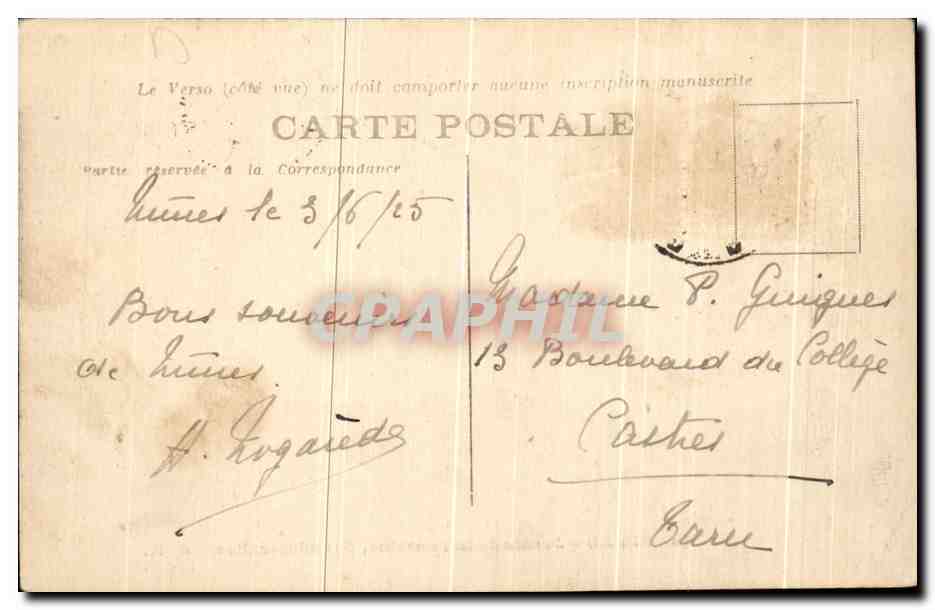 Le Verso (côté vue) ne doit comporter aucune inscription manuscrite
CARTE POSTALE
Partie réservée à la Correspondance
Nîmes le 3/6/25
Bons souvenirs
de Nîmes.
A. Nogarède
Madame P. Guigues
13 Boulevard du Collège
Castres
Tarn
CPAPHIL